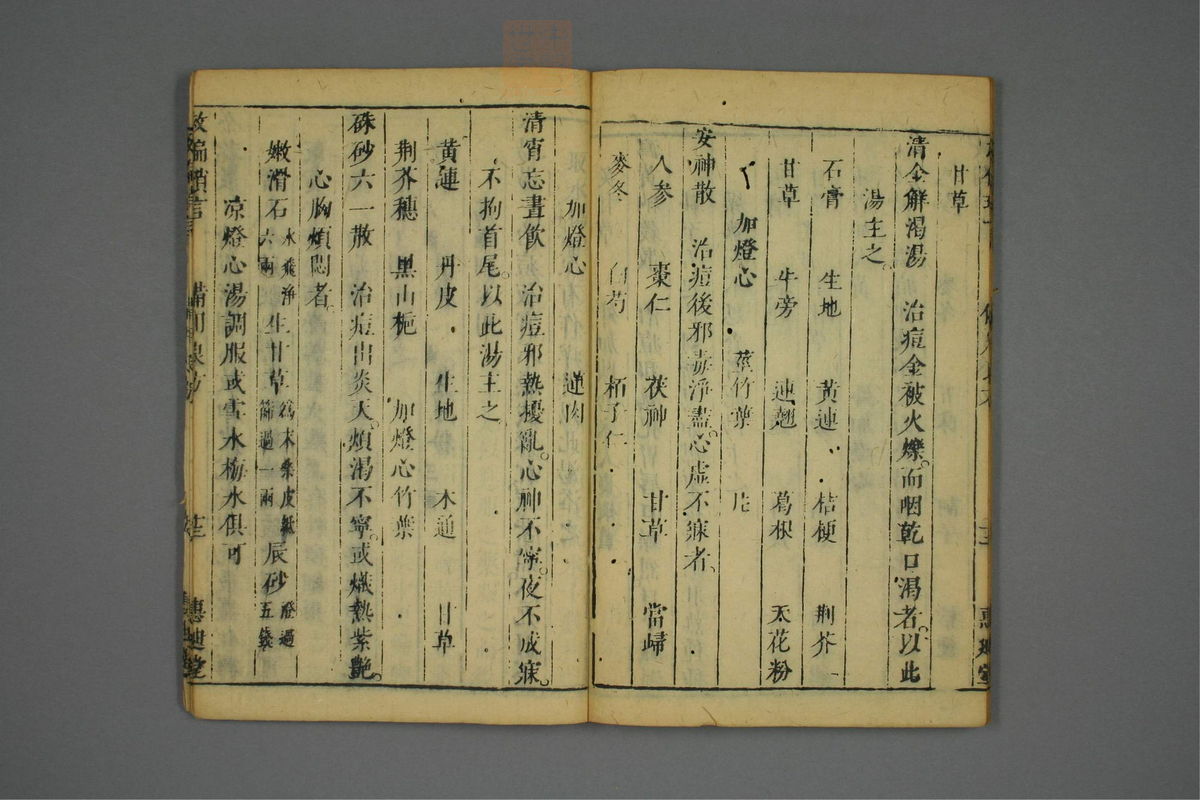 甘草
清金解渴湯　治痘金被火爍。而咽乾口渴者。以此
湯主之。
石膏　生地　黄連　桔梗　荆芥
甘草　牛旁　連翹　葛根　天花粉
加燈心　莖竹葉　片
安神散　治痘後邪毒淨盡。心虚不寐者。
人參　棗仁　茯神　甘草　當歸
麥冬　白芍　栢子仁
加燈心　蓮肉
清宵忘晝飲　治痘邪熱擾亂。心神不寧。夜不成寐。
不拘首尾。以此湯主之
黄連　丹皮　生地　木通　甘草
荆芥穗　黒山梔　加燈心竹葉
硃砂六一散　治痘出炎天。煩渴不寧。或熾熱紫艷。
心胸煩悶者。
嫩滑石水飛淨六兩　生甘草爲末桑皮紙篩過一兩　辰砂澄過五錢
凉燈心湯調服或雪水梅水俱可
救偏瑣言　備用良方　惠迪堂